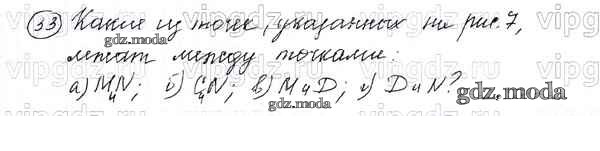 33 Какие из точек, указанных на рис. 7,
лежат между точками:
а) М и N; б) С и N; в) М и D; г) D и N?
gdz.moda
gdz.moda
gdz.moda